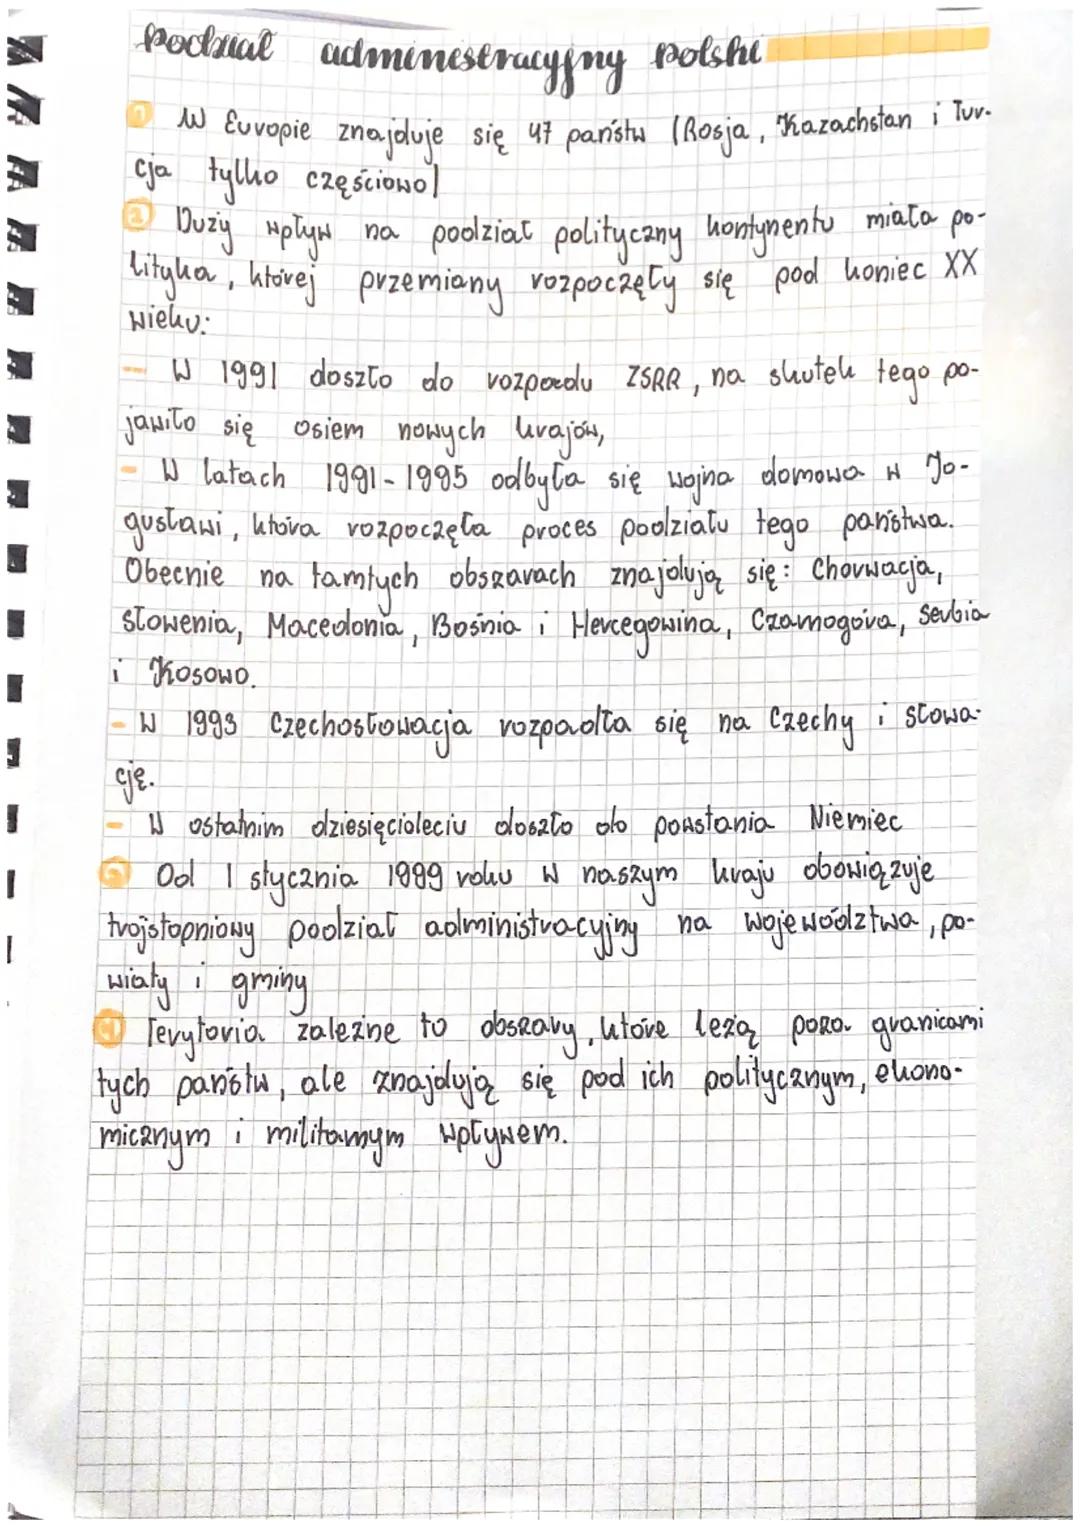 Podział administracyjny Polski
1 W Europie znajduje się 47 państw (Rosja, Kazachstan i Tur-
cja tylko częściowo)
2 Duży wpływ na podział polityczny kontynentu miała po-
lityka, której przemiany rozpoczęły się pod koniec XX
wieku:
- W 1991 doszło do rozpadu ZSRR, na skutek tego po-
jawiło się osiem nowych krajów,
- W latach 1991-1995 odbyła się wojna domowa w Jo-
gusławi, która rozpoczęła proces podziału tego państwa.
Obecnie na tamtych obszarach znajdują się: Chorwacja,
Słowenia, Macedonia, Bośnia i Hercegowina, Czarnogóra, Serbia
i Kosowo.
- W 1993 Czechosłowacja rozpadła się na Czechy i Słowa-
cję.
- W ostatnim dziesięcioleciu doszło do powstania Niemiec
3 Od 1 stycznia 1999 roku w naszym kraju obowiązuje
trójstopniowy podział administracyjny na województwa, po-
wiaty i gminy
4 Terytoria zależne to obszary, które leżą poza granicami
tych państw, ale znajdują się pod ich politycznym, ekono-
micznym i militarnym wpływem.